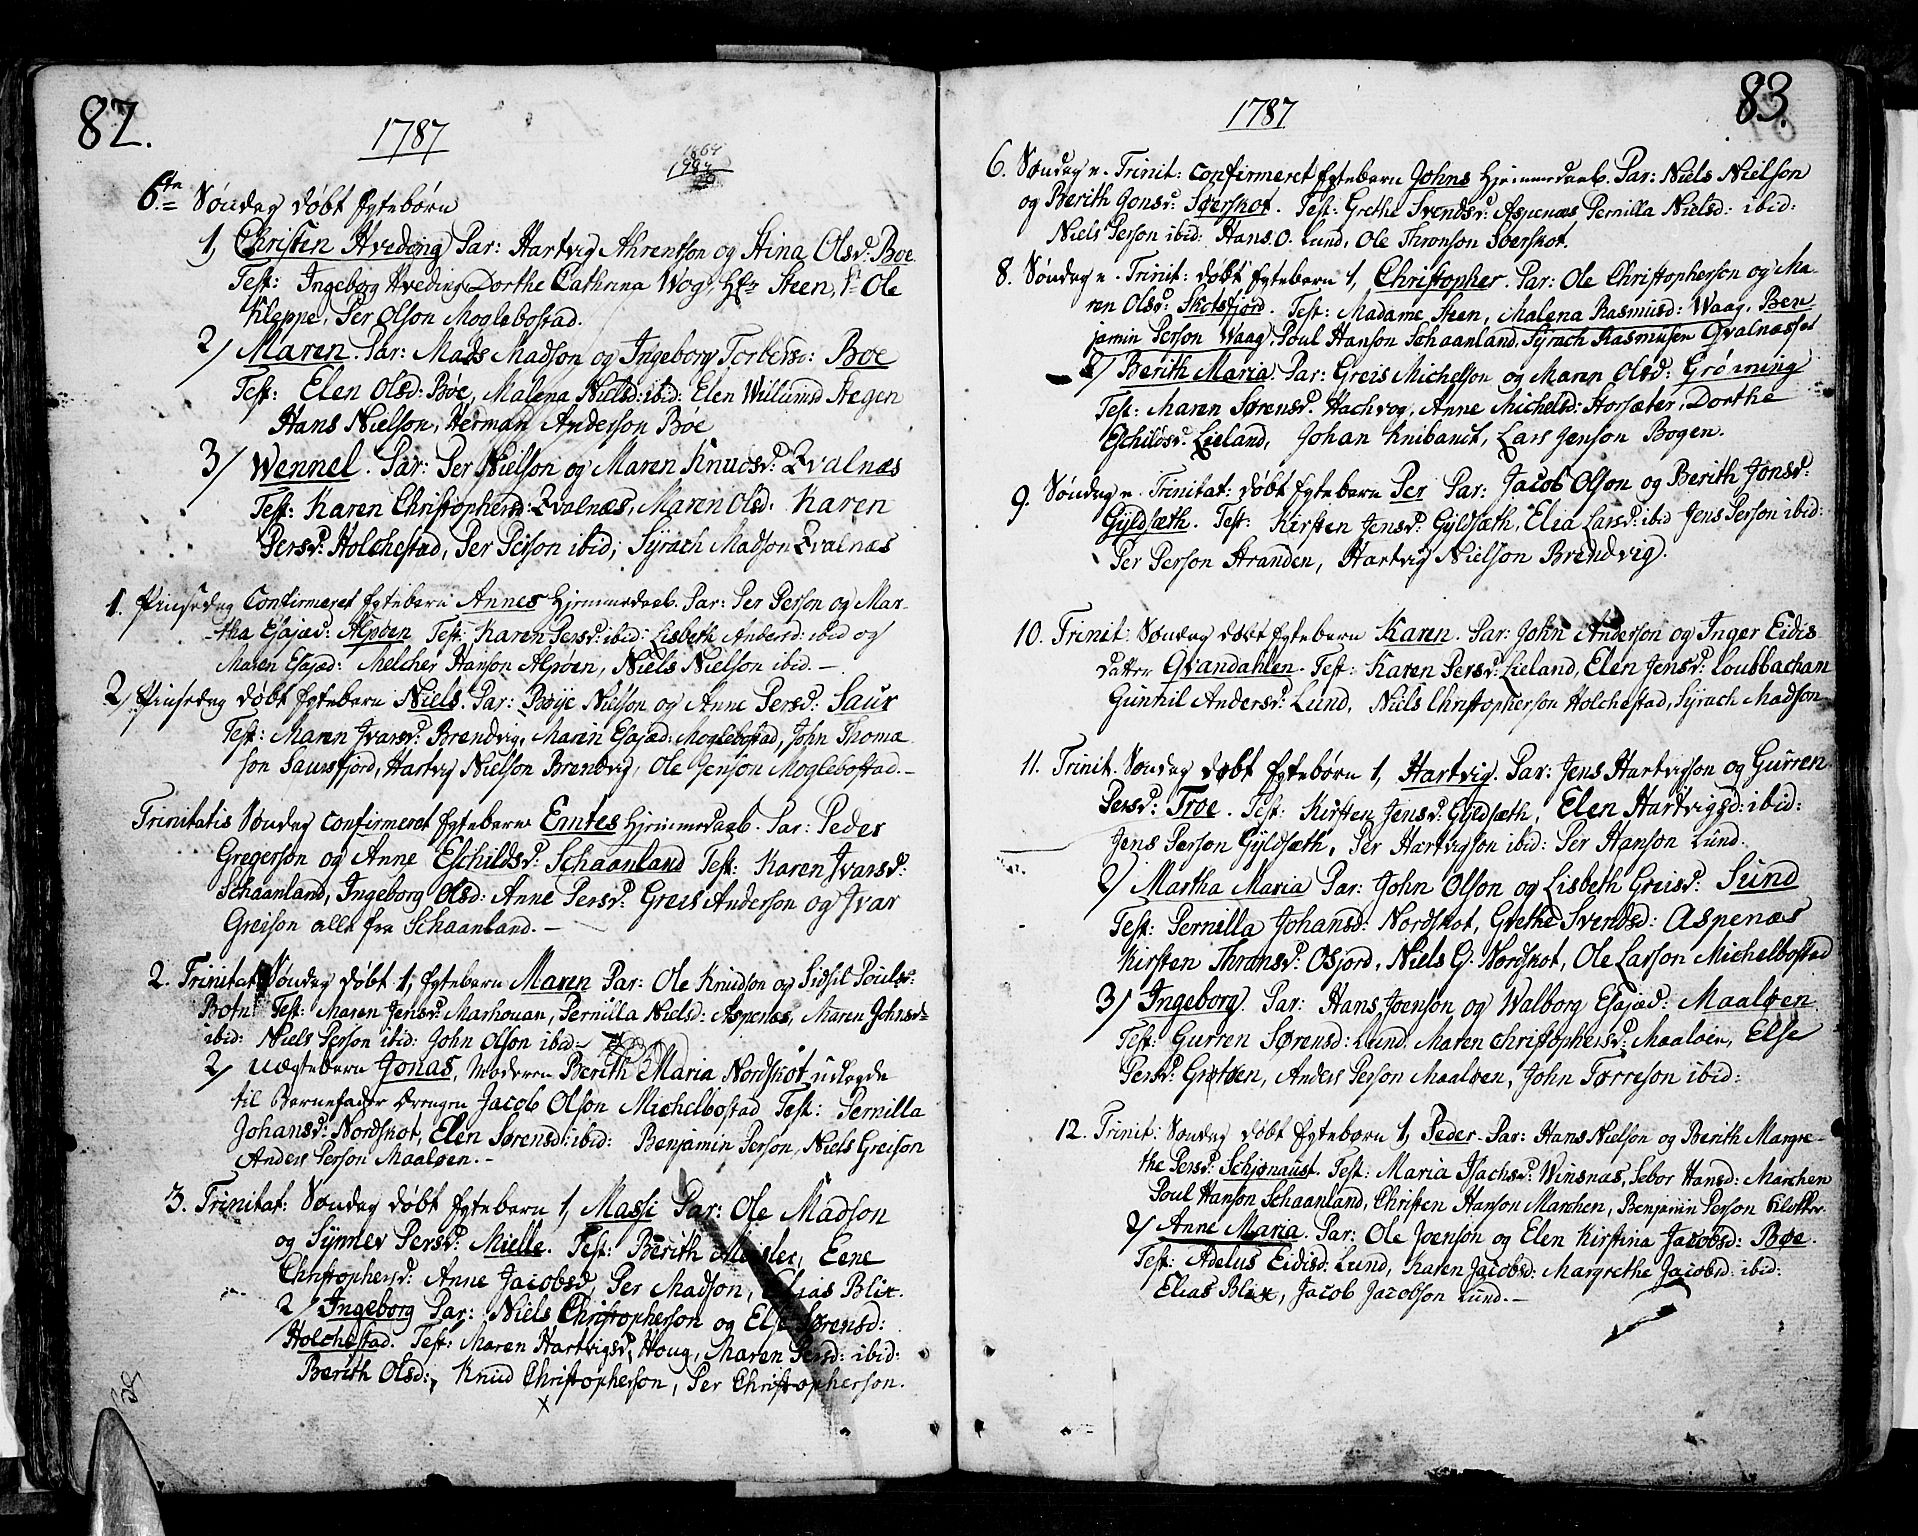 82.
1787
6te Søndag døbt Egtebørn
1, Christen Hveding Par: Hartvig Ahrentson og Stina Olsd: Boe
Test: Ingeborg Hveding Dorthe Cathrina Wog, Hr Steen, Ole
Kleppe, Per Olson Moglebostad.
2/ Maren. Par: Mads Madson og Ingeborg Torbersd: Boe
Test: Elen Olsd: Bøe, Malena Nielsd: ibid: Elen Willumsd Stegen
Hans Nielson, Herman Anderson Bøe
3/ Wennel. Par: Per Nielson og Maren Knudsd: Qvalnæs
Test: Karen Christophersd: Qvalnæs, Maren Olsd. Karen
Persd: Holchestad, Per Person ibid; Syrach Madson Qvalnæs
1. Pinsedag Confirmeret Egtebarn Annes Hjemmedaab. Par: Per Person og Mar-
tha Esajæd: Alpøen Test: Karen Persd: ibid: Lisbeth Andersd: ibid og
Maren Esajæd: Melcher Hanson Alpøen, Niels Nielson ibid. -
2/ Pinsedag døbt Egtebarn Niels. Par: Bøye Nielson og Anne Persd: Saur
Test: Maren Ivarsd: Brendvig, Maren Esajæd: Moglebostad, John Thoma
son Saursfjord, Hartvig Nielson Brendvig, Ole Jenson Moglebostad. -
Trinitatis Søndag confirmeret Egtebarn Enntes Hjemmedaab. Par: Peder
Gregerson og Anne Eschildsd: Schaanland Test: Karen Ivarsd:
Schaanland, Ingeborg Olsd: Anne Persd: Greis Anderson og Ivar
Greison alle fra Schaanland. -
2. Trinitat: Søndag døbt 1, Egtebarn Maren Par: Ole Knudson og Sidsil Poulsd:
Botn Test: Maren Jensd: Marhouan, Pernilla Nielsd: Aspenæs, Maren Johnsd:
ibid: Niels Person ibid: John Olson ibid-
2/ Uægtebarn Jonas, Moderen Berith Maria Nordskot udlagde
til Barnefader Drengen Jacob Olson Michelbostad Test: Pernilla
Johansd: Nordskot, Elen Sørensd: ibid: Benjamin Person, Niels Greison
Anders Person Maaløen. -
3. Trinitat: Søndag døbt Egtebarn 1, Massi Par: Ole Madson
og Synnev Persd: Mielle. Test: Berith Meisler, Eene
Christophersd: Anne Jacobsd, Per Madson, Elias Blix.
2/ Ingeborg Par: Niels Christopherson og Else Sørensd:
Holchestad. Test: Maren Hartvigsd, Houg, Maren Persd: ibid:
Berith Olsd:, Knud Christopherson, Per Christopherson.
83.
1787
6. Søndag e. Trinit: confirmeret Egtebarn Johns Hjemmedaab. Par: Niels Nielson
og Berith Jonsd: Søerskot. Test: Grethe Svendsd: Aspenæs Pernilla Nielsd: ibid:
Niels Person ibid: Hans O. Lund, Ole Thronson Søerskot.
8. Søndag e. Trinit: døbt Egtebarn 1, Christopher. Par: Ole Christopherson og Ma-
ren Olsd: Skotsfjord. Test: Madame Steen, Malena Rasmusd: Waag, Ben
jamin Person Waag, Poul Hanson Schaanland, Syrach Rasmusen Qvalnæsset
2/ Berith Maria. Par: Greis Michelson og Maren Olsd: Grønning
Test: Maren Sørensd: Hachvog, Anne Michelsd: Horsæter, Dorthe
Eschildsd: Lieland, Johan Knibanct, Lars Jenson Bogen.
9. Søndag e. Trinitat: døbt Egtebarn Per Par: Jacob Olson og Berith Jonsd:
Gyldsæth. Test: Kirsten Jensd: Gyldsæth, Elia Larsd: ibid Jens Person ibid:
Per Person Stranden, Hartvig Nielson Brendvig.
10. Trinit: Søndag døbt Egtebarn Karen. Par: John Anderson og Inger Eidis-
datter Qvandahlen. Test: Karen Persd: Lieland, Elen Jensd: Loubbachan
Gunnil Andersd: Lund, Niels Christopherson Holchestad, Syrach Madson
11. Trinit. Søndag døbt Egtebørn 1, Hartvig. Par: Jens Hartvigson og Gurren
Persd: Troe. Test: Kirsten Jensd: Gyldsæth, Elen Hartvigsd: ibid:
Jens Person Gyldsæth, Per Hartvigson ibid: Per Hanson Lund.
2/ Martha Maria Par: John Olson og Lisbeth Greisd: Sund
Test: Pernilla Johansd: Nordskot, Grethe Svendsd: Aspenæs
Kirsten Thronsd: Osjord, Niels G. Nordskot, Ole Larson Michelbostad
3/ Ingeborg. Par: Hans Joenson og Walborg Esajæd: Maaløen.
Test: Gurren Sørensd: Lund. Maren Christophersd: Maaløen, Else
Persd: Grøtøen, Anders Person Maaløen, John Torreson ibid:
12. Trinit: Søndag døbt Egtebørn 1, Peder. Par: Hans Nielson og Berith Margre-
the Persd: Schjønaust. Test: Maria Isachsd: Winsnæs, Sebor Hansd: Marchen
Poul Hanson Schaanland, Christen Hanson Marchen, Benjamin Person Kloster
2/ Anne Maria. Par: Ole Joenson og Elen Kirstina Jacobsd: Bøe.
Test: Adelus Eidisd: Lund, Karen Jacobsd: Margrethe Jacobsd ibid:
Elias Blix, Jacob Jacobson Lund. -